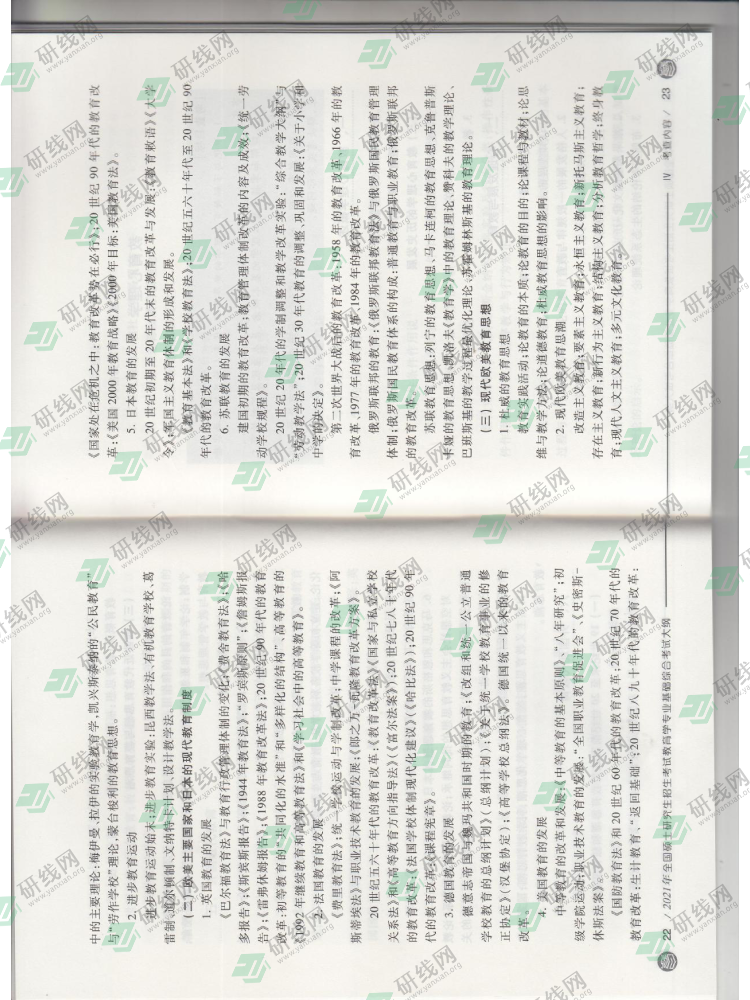 中的主要理论;梅伊曼、拉伊的实验教育学,凯兴斯泰纳的“公民教育”
与“劳作学校”理论;蒙台梭利的教育思想。
2. 进步教育运动
进步教育运动始末;进步教育实验:昆西教学法、有机教育学校、葛
雷制、道尔顿制、文纳特卡计划、设计教学法。
(二) 欧美主要国家和日本的现代教育制度
1. 英国教育的发展
《巴尔福教育法》与教育行政管理体制的变化;《费舍教育法》;《哈
多报告》;《斯宾斯报告》;《1944年教育法》;“罗宾斯原则”;《詹姆斯报
告》;《雷弗休姆报告》;《1988年教育改革法》;20世纪90年代的教育
改革:初等教育的“共同化的水准”和“多样化的结构”、高等教育的
《1992年继续教育和高等教育法》和《学习社会中的高等教育》。
2. 法国教育的发展
《费里教育法》;统一学校运动与学制改革;中学课程的改革;《阿
斯蒂埃法》与职业技术教育的发展;《郎之万-瓦隆教育改革方案》。
20世纪五六十年代的教育改革:《教育改革法》、《国家与私立学校
关系法》和《高等教育方向指导法》(《富尔法案》);20世纪七八十年代
的教育改革:《法国学校体制现代化建议》(《哈比法》);20世纪90年
代的教育改革:《课程宪章》。
3. 德国教育的发展
德意志帝国与魏玛共和国时期的教育;《改组和统一公立普通
学校教育的总纲计划》(《总纲计划》);《关于统一学校教育事业的修
正协定》(《汉堡协定》);《高等学校总纲法》。德国统一以来的教育
改革。
4. 美国教育的发展
中等教育的改革和发展:《中等教育的基本原则》、“八年研究”;初
级学院运动;职业技术教育的发展:“全国职业教育促进会”、《史密斯-
休斯法案》。
《国防教育法》和20世纪60年代的教育改革;20世纪70年代的
教育改革:生计教育、“返回基础”;20世纪八九十年代的教育改革:
22 / 2021年全国硕士研究生招生考试教育学专业基础综合考试大纲
《国家处在危机之中:教育改革势在必行》;20世纪90年代的教育改
革:《美国2000年教育战略》《2000年目标:美国教育法》。
5. 日本教育的发展
20世纪初期至20年代末的教育改革与发展:《教育敕语》《大学
令》;军国主义教育体制的形成和发展。
《教育基本法》和《学校教育法》;20世纪五六十年代至20世纪90
年代的教育改革。
6. 苏联教育的发展
建国初期的教育改革:教育管理体制改革的内容及成效;《统一劳
动学校规程》。
20世纪20年代的学制调整和教学改革实验:“综合教学大纲”与
“劳动教学法”;20世纪30年代教育的调整、巩固和发展:《关于小学和
中学的决定》。
第二次世界大战后的教育改革:1958年的教育改革、1966年的教
育改革、1977年的教育改革、1984年的教育改革。
俄罗斯联邦的教育:《俄罗斯联邦教育法》与俄罗斯国民教育管理
体制;俄罗斯国民教育体系的构成;普通教育与职业教育;俄罗斯联邦
的教育改革。
苏联教育思想:列宁的教育思想、马卡连柯的教育思想、克鲁普斯
卡娅的教育思想、凯洛夫《教育学》中的教育理论、赞科夫的教学理论、
巴班斯基的教学过程最优化理论、苏霍姆林斯基的教育理论。
(三) 现代欧美教育思想
1. 杜威的教育思想
教育实践活动;论教育的本质;论教育的目的;论课程与教材;论思
维与教学方法;论道德教育;杜威教育思想的影响。
2. 现代欧美教育思潮
改造主义教育;要素主义教育;永恒主义教育;新托马斯主义教育;
存在主义教育;新行为主义教育;结构主义教育;分析教育哲学;终身教
育;现代人文主义教育;多元文化教育。
Ⅳ 考查内容 / 23
研线网
www.yanxian.org